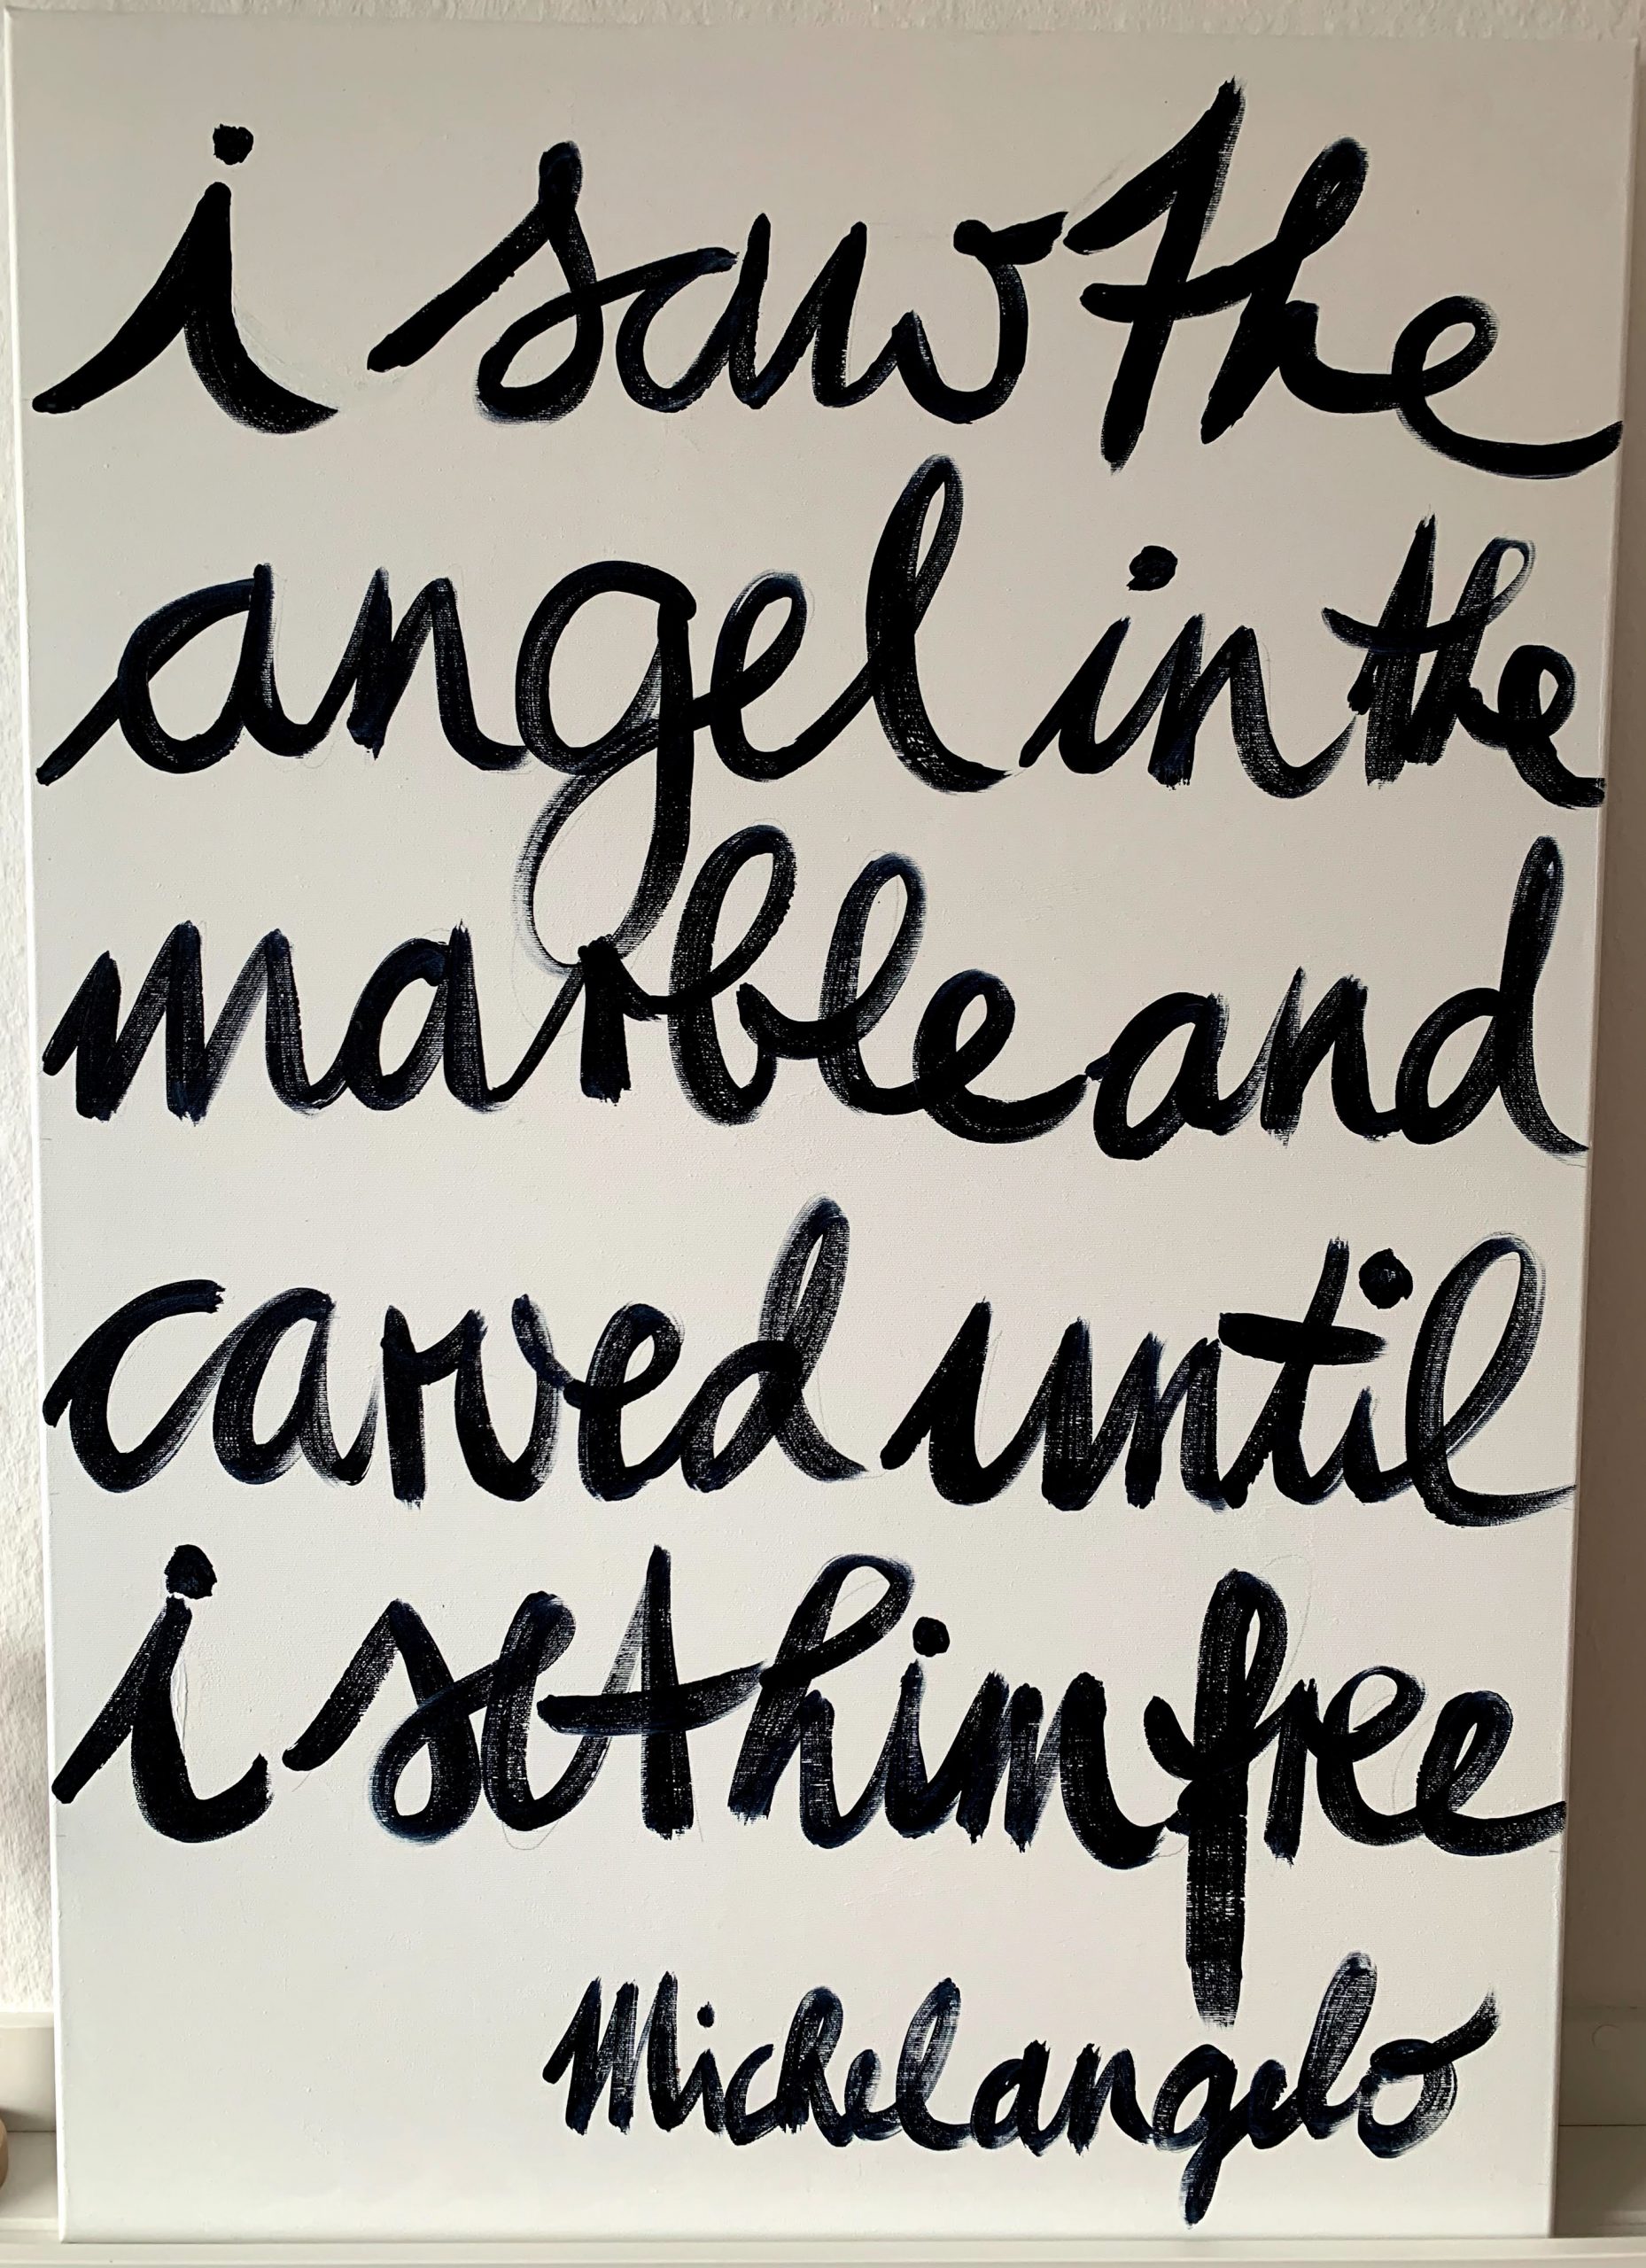 i saw the
angel in the
marble and
carved until
i set him free
Michelangelo